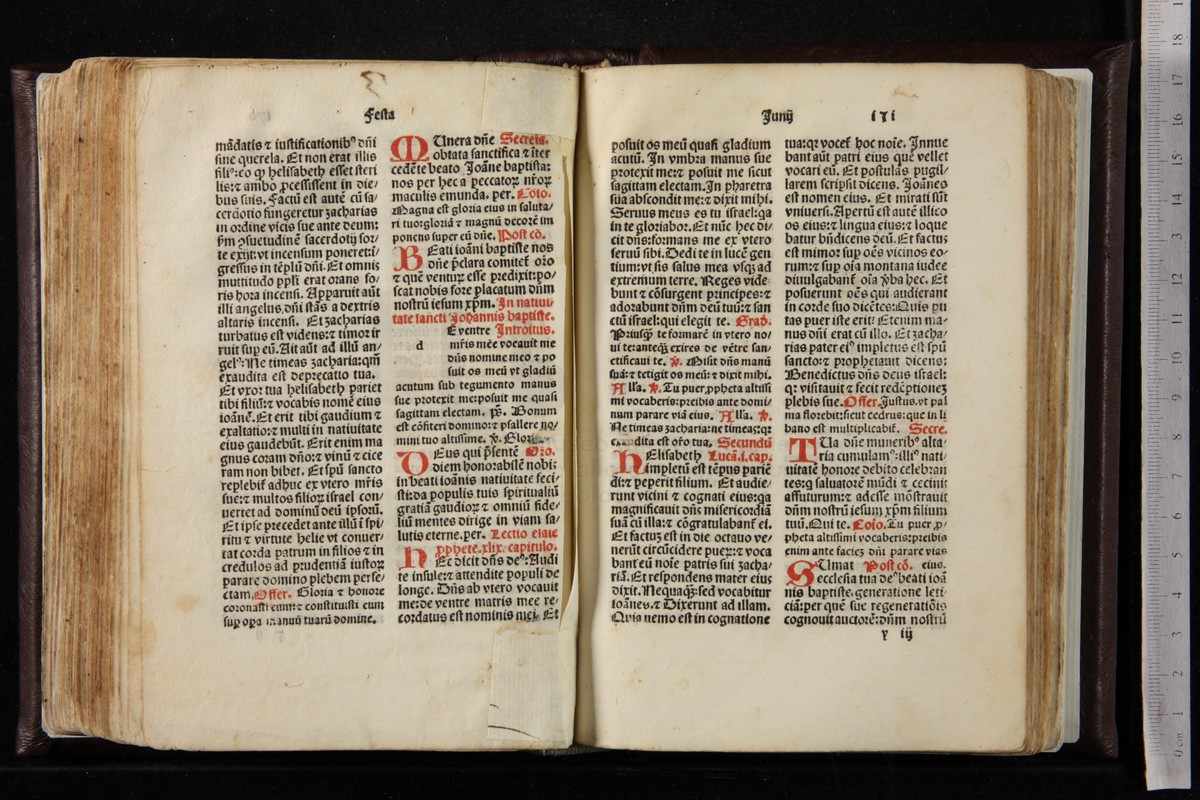 Festa
mādatis ⁊ iustificationibꝰ dñi
sine querela. Et non erat illis
filiꝰ: eo ꝙ helisabeth esset steri
lis: ⁊ ambo ꝓcessissent in die-
bus suis. Factū est autē cū sa-
cerdotio fungeretur zacharias
in ordine vicis sue ante deum:
ẜm ↄsuetudinē sacerdotij sor-
te exijt: vt incensum poneret: i-
gressus in tēplū dñi. Et omnis
multitudo ppl̓i erat orans fo-
ris hora incensi. Apparuit aūt
illi angelus dñi stās a dextris
altaris incensi. Et zacharias
turbatus est videns: ⁊ timor ir
ruit sup eū. Ait aūt ad illū an-
gelꝰ: Ne timeas zacharia: qm̄
exaudita est deprecatio tua.
Et vxor tua helisabeth pariet
tibi filiū: ⁊ vocabis nomē eius
ioānē. Et erit tibi gaudium ⁊
exaltatio: ⁊ multi in natiuitate
eius gaudebūt. Erit enim ma
gnus coram dño: ⁊ vinū ⁊ cice
ram non bibet. Et spū sancto
replebit̄ adhuc ex vtero mr̄is
sue: ⁊ multos filioꝝ israel con-
uertet ad dominū deū ipsorū.
Et ipse precedet ante illū ī spi-
ritu ⁊ virtute helie vt conuer-
tat corda patrum in filios ⁊ in
credulos ad prudentiā iustoꝝ
parare domino plebem perfe-
ctam. Offer. Gloria ⁊ honore
coronasti eum: ⁊ constituisti eum
suꝑ oꝑa manuū tuarū domine.
MUnera dñe Secreta.
oblata sanctifica ⁊ īter
cedēte beato Joāne baptista:
nos per hec a peccatoꝝ nr̄oꝝ
maculis emunda. per. Cōio.
Magna est gloria eius in saluta-
ri tuo: gloriā ⁊ magnū decorē im
ponens super eū dñe. Post cō.
BEati ioāni baptiste nos
dñe p̄clara comitet̄ oro
⁊ quē venturꝝ esse predixit: po-
scat nobis fore placatum dñm
nostrū iesum xp̄m. In natiui-
tate sancti Johannis baptiste.
E ventre Introitus.
d mr̄is mee vocauit me
dñs nomine meo ⁊ po
suit os meū vt gladiū
acutum sub tegumento manus
sue protexit me: posuit me quasi
sagittam electam. p̄s. Bonum
est cōfiteri domino: ⁊ psallere no-
mini tuo altissime. ℣.
DEus qui p̄sentē Oro.
diem honorabilē nobis
in beati ioānis natiuitate feci-
sti: da populis tuis spiritualiū
gratiā gaudioꝝ ⁊ omniū fide-
liū mentes dirige in viam sa-
lutis eterne. per. Lectio eiaie
ꝓphete. xlix. capitulo.
HEc dicit dñs deꝰ: Audi
te insule: ⁊ attendite populi de
longe. Dñs ab vtero vocauit
me: de ventre matris mee re-
cordatus est nominis mei. Et
Junij lxi
posuit os meū quasi gladium
acutū. In vmbra manus sue
protexit me: ⁊ posuit me sicut
sagittam electam. In pharetra
sua abscondit me: ⁊ dixit mihi.
Seruus meus es tu israel: qa
in te gloriabor. Et nūc hec di-
cit dñs: formans me ex vtero
seruū sibi. Dedi te in lucē gen
tium: vt sis salus mea vsqꝫ ad
extremum terre. Reges vide
bunt ⁊ cōsurgent principes: ⁊
adorabunt dñm deū tuū: ⁊ san
ctū israel: qui elegit te. Grad.
Priusqꝫ te formarē in vtero no-
ui te: anteqꝫ exires de vētre san-
ctificaui te. ℣. Misit dñs manū
suā: ⁊ tetigit os meū: ⁊ dixit mihi.
Alla. ℣. Tu puer ꝓpheta altissi
mi vocaberis: preibis ante domi-
num parare viā eius. Alla. ℣.
Ne timeas zacharia: ne timeas: qꝛ
dita est oꝛo tua. Secundū
Lucā. i. cap.
HElisabeth
impletū est tēpus pariē
di: ⁊ peperit filium. Et audie-
runt vicini ⁊ cognati eius: qa
magnificauit dñs misericordiā
suā cū illa: ⁊ cōgratulabant̄ ei.
Et factuꝫ est in die octauo ve-
nerūt circūcidere pueꝝ: ⁊ voca
bant̄ eū noīe patris sui zacha-
riā. Et respondens mater eius
dixit. Nequaqꝫ: sed vocabitur
ioānes. ⁊ Dixerunt ad illam.
Quia nemo est in cognatione
tua: qꝛ vocet̄ hoc noīe. Innue
bant aūt patri eius quē vellet
vocari eū. Et postulās pugil-
larem scripsit dicens. Joānes
est nomen eius. Et mirati sūt
vniuersi. Apertū est autē illico
os eius: ⁊ lingua eius: ⁊ loque
batur bn̄dicens deū. Et factus
est timor sup oēs vicinos eo-
rum: ⁊ sup oīa montana iudee
diuulgabant̄ oīa v̓ba hec. Et
posuerunt oēs qui audierant
in corde suo dicētes: Quis pu
tas puer iste erit: Etenim ma-
nus dñi erat cū illo. Et zacha-
rias pater eiꝰ impletus est spū
sancto: ⁊ prophetauit dicens:
Benedictus dñs deus israel:
qꝛ visitauit ⁊ fecit redēptioneꝫ
plebis sue. Offer. Justus vt pal
ma florebit: sicut cedrus: que in li
bano est multiplicabit̄. Secre.
TUa dñe muneribꝰ alta-
ria cumulamꝰ: illiꝰ nati
uitatē honore debito celebran
tes: q̄ saluatorē mūdi ⁊ cecinit
affuturum: ⁊ adesse mōstrauit
dñm nostrū iesum xp̄m filium
tuū. Qui te. Cōio. Tu puer ꝓ-
pheta altissimi vocaberis: preibis
enim ante facieꝫ dñi parare vias
SUmat Post cō. eius.
ecclesia tua deꝰ beati ioā
nis baptiste generatione leti-
ciā: per quē sue regeneratiōis
cognouit auctorē: dñm nostrū
y iij